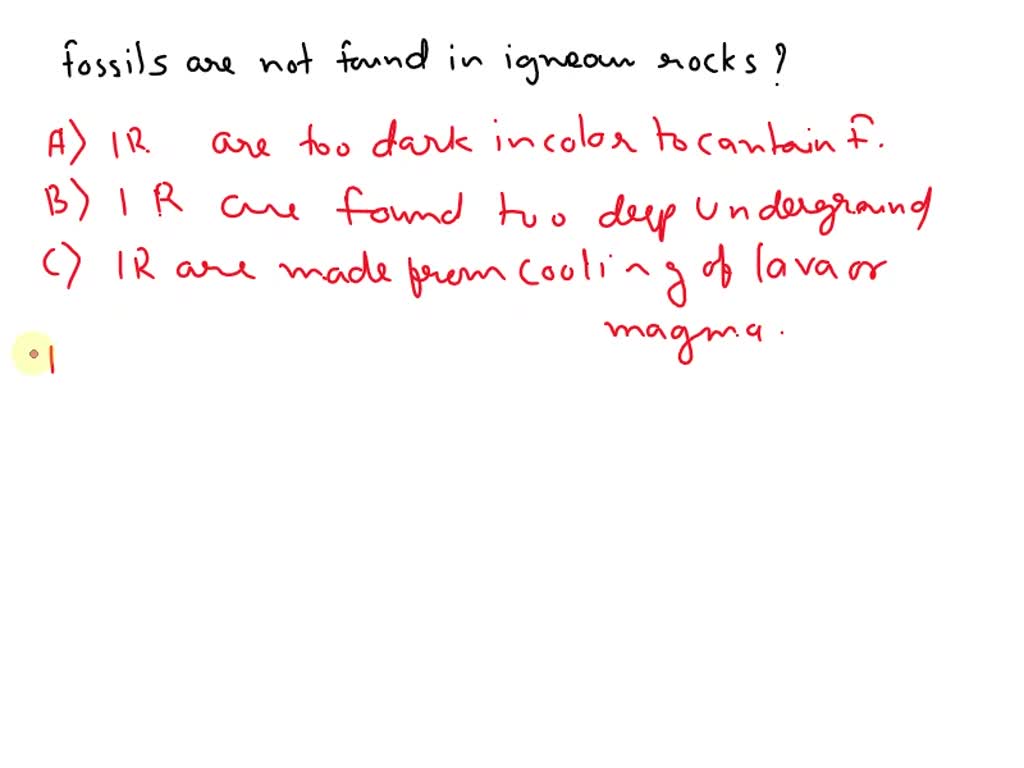 fossils are not found in igneous rocks?
A) IR are too dark in color to contain F.
B) IR are found too deep underground
C) IR are made from cooling of lava or
magma.